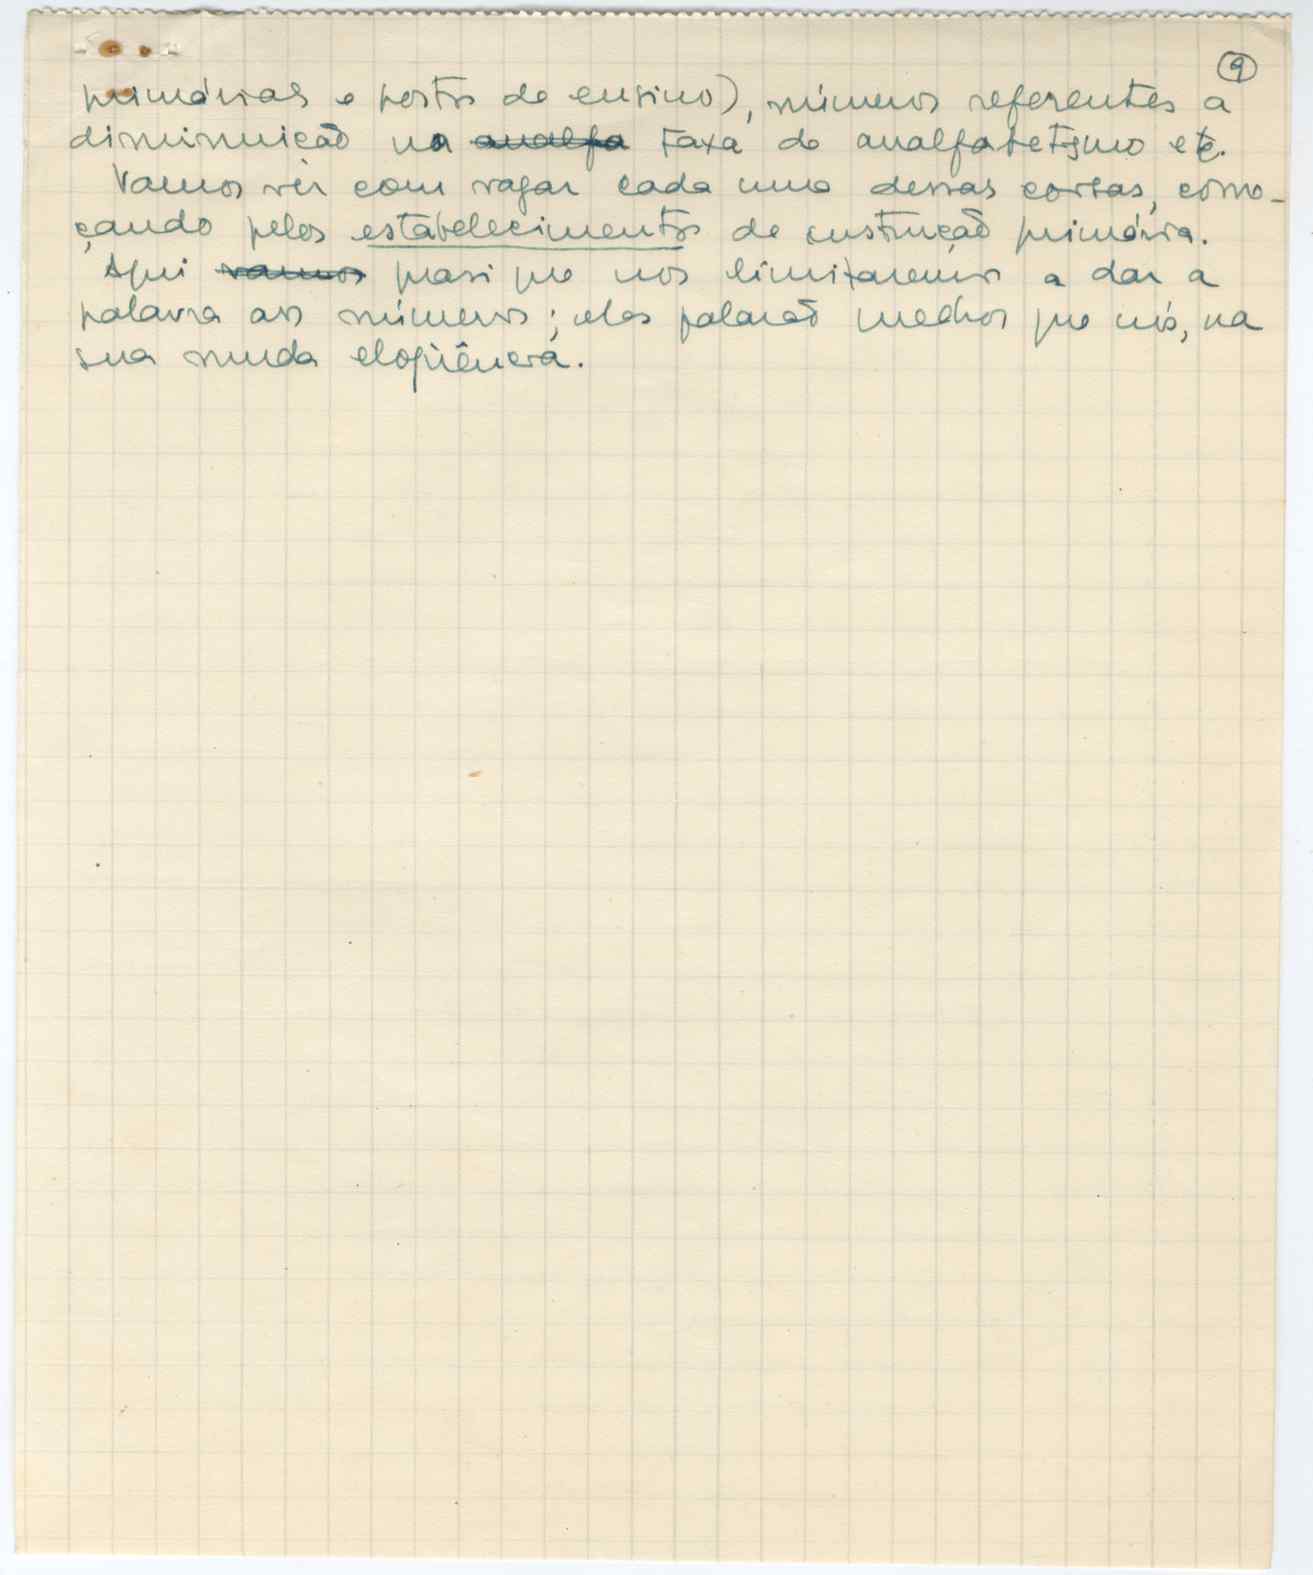 9
primárias e postos de ensino), números referentes a
diminuição na analfa taxa de analfabetismo etc.
Vamos vêr com vagar cada uma dessas coisas, come-
çando pelos estabelecimentos de instrução primária.
Aqui vamos quasi que nos limitaremos a dar a
palavra aos números; eles falarão melhor que nós, na
sua muda eloqüência.